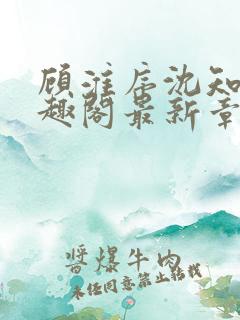 顾淮辰沈知
趣阁最新章
酱爆牛肉
未经同意禁止转载